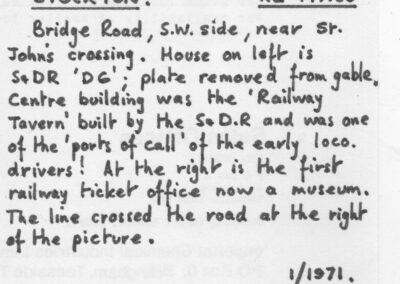 STOCKTON.
Bridge Road, S.W. side, near St.
John's crossing. House on left is
S&DR 'DG'; plate removed from gable.
Centre building was the 'Railway
Tavern' built by the S&D.R and was one
of the 'ports of call' of the early loco.
drivers! At the right is the first
railway ticket office now a museum.
The line crossed the road at the right
of the picture.
1/1971.